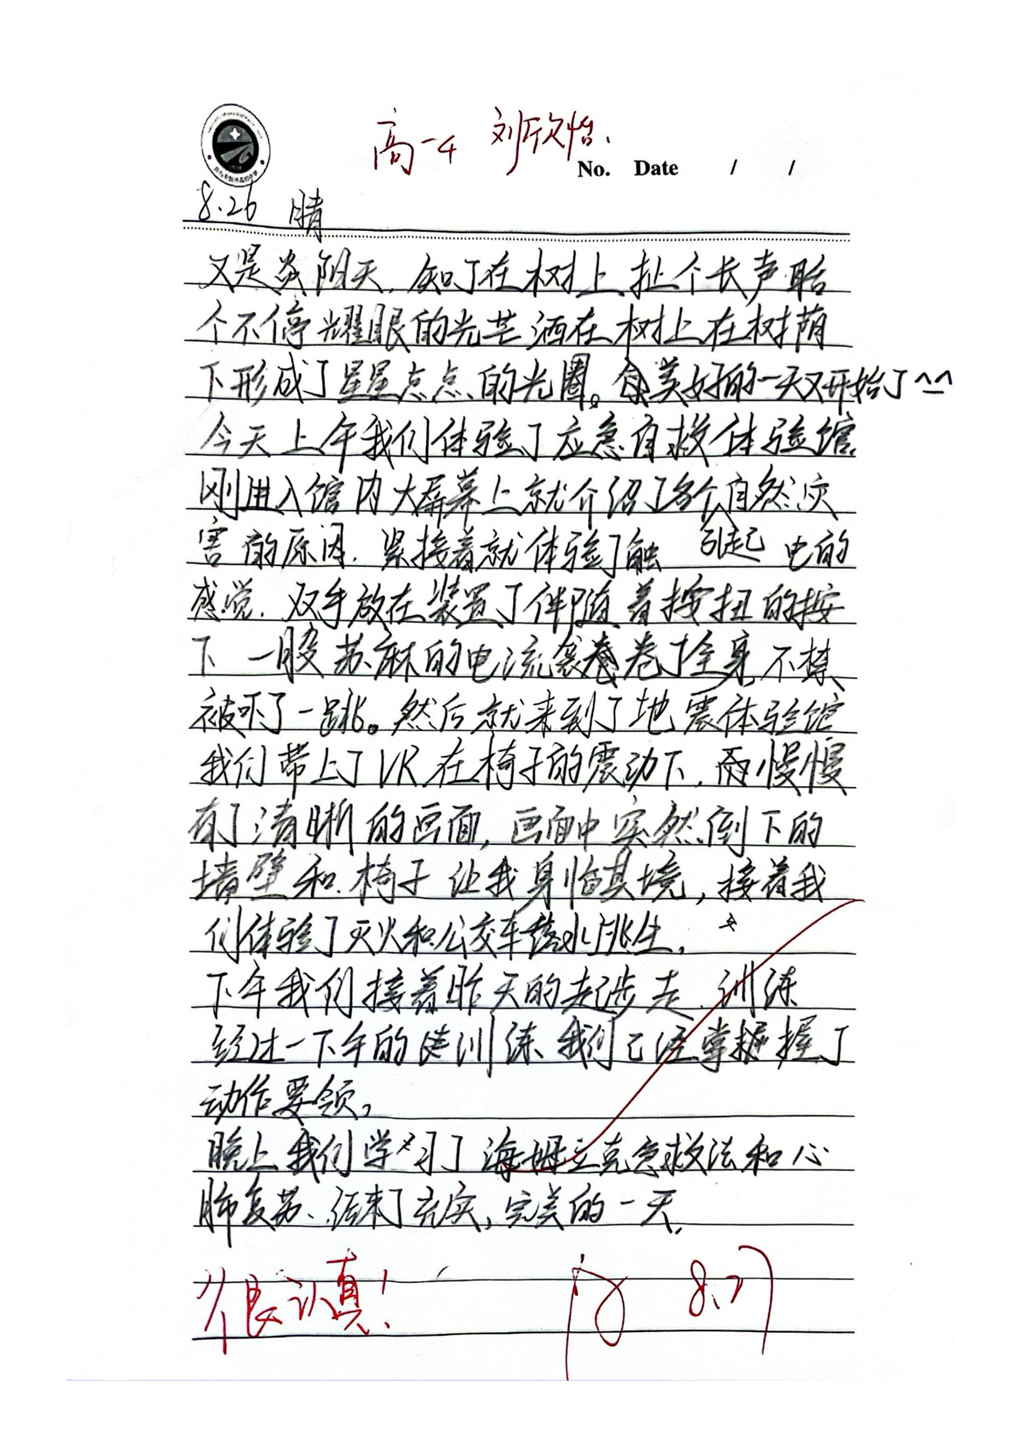 高一4 刘欣怡.
No. Date / /
8.26 晴
又是炎阴天. 知了在树上扯个长声聒
个不停耀眼的光芒洒在树上在树荫
下形成了星星点点的光圈。美好的一天又开始了^_^
今天上午我们体验了应急自救体验馆
刚进入馆内大屏幕上就介绍了各个自然灾
害的原因. 紧接着就体验了触 引起 电的
感觉. 双手放在装置了伴随着按扭的按
下 一股苏麻的电流袭卷了全身, 不禁
被吓了一跳。然后就来到了地震体验馆
我们带上了VR 在椅子的震动下. 慢慢
有了清晰的画面, 画面中突然倒下的
墙壁和椅子让我身临其境, 接着我
们体验了灭火和公交车落水逃生.
下午我们接着昨天的起步走 训练
经过一下午的训练 我们已经掌握了
动作要领。
晚上我们学习了海姆立克急救法和心
肺复苏、结束了充实, 完美的一天.
很认真!
8.27